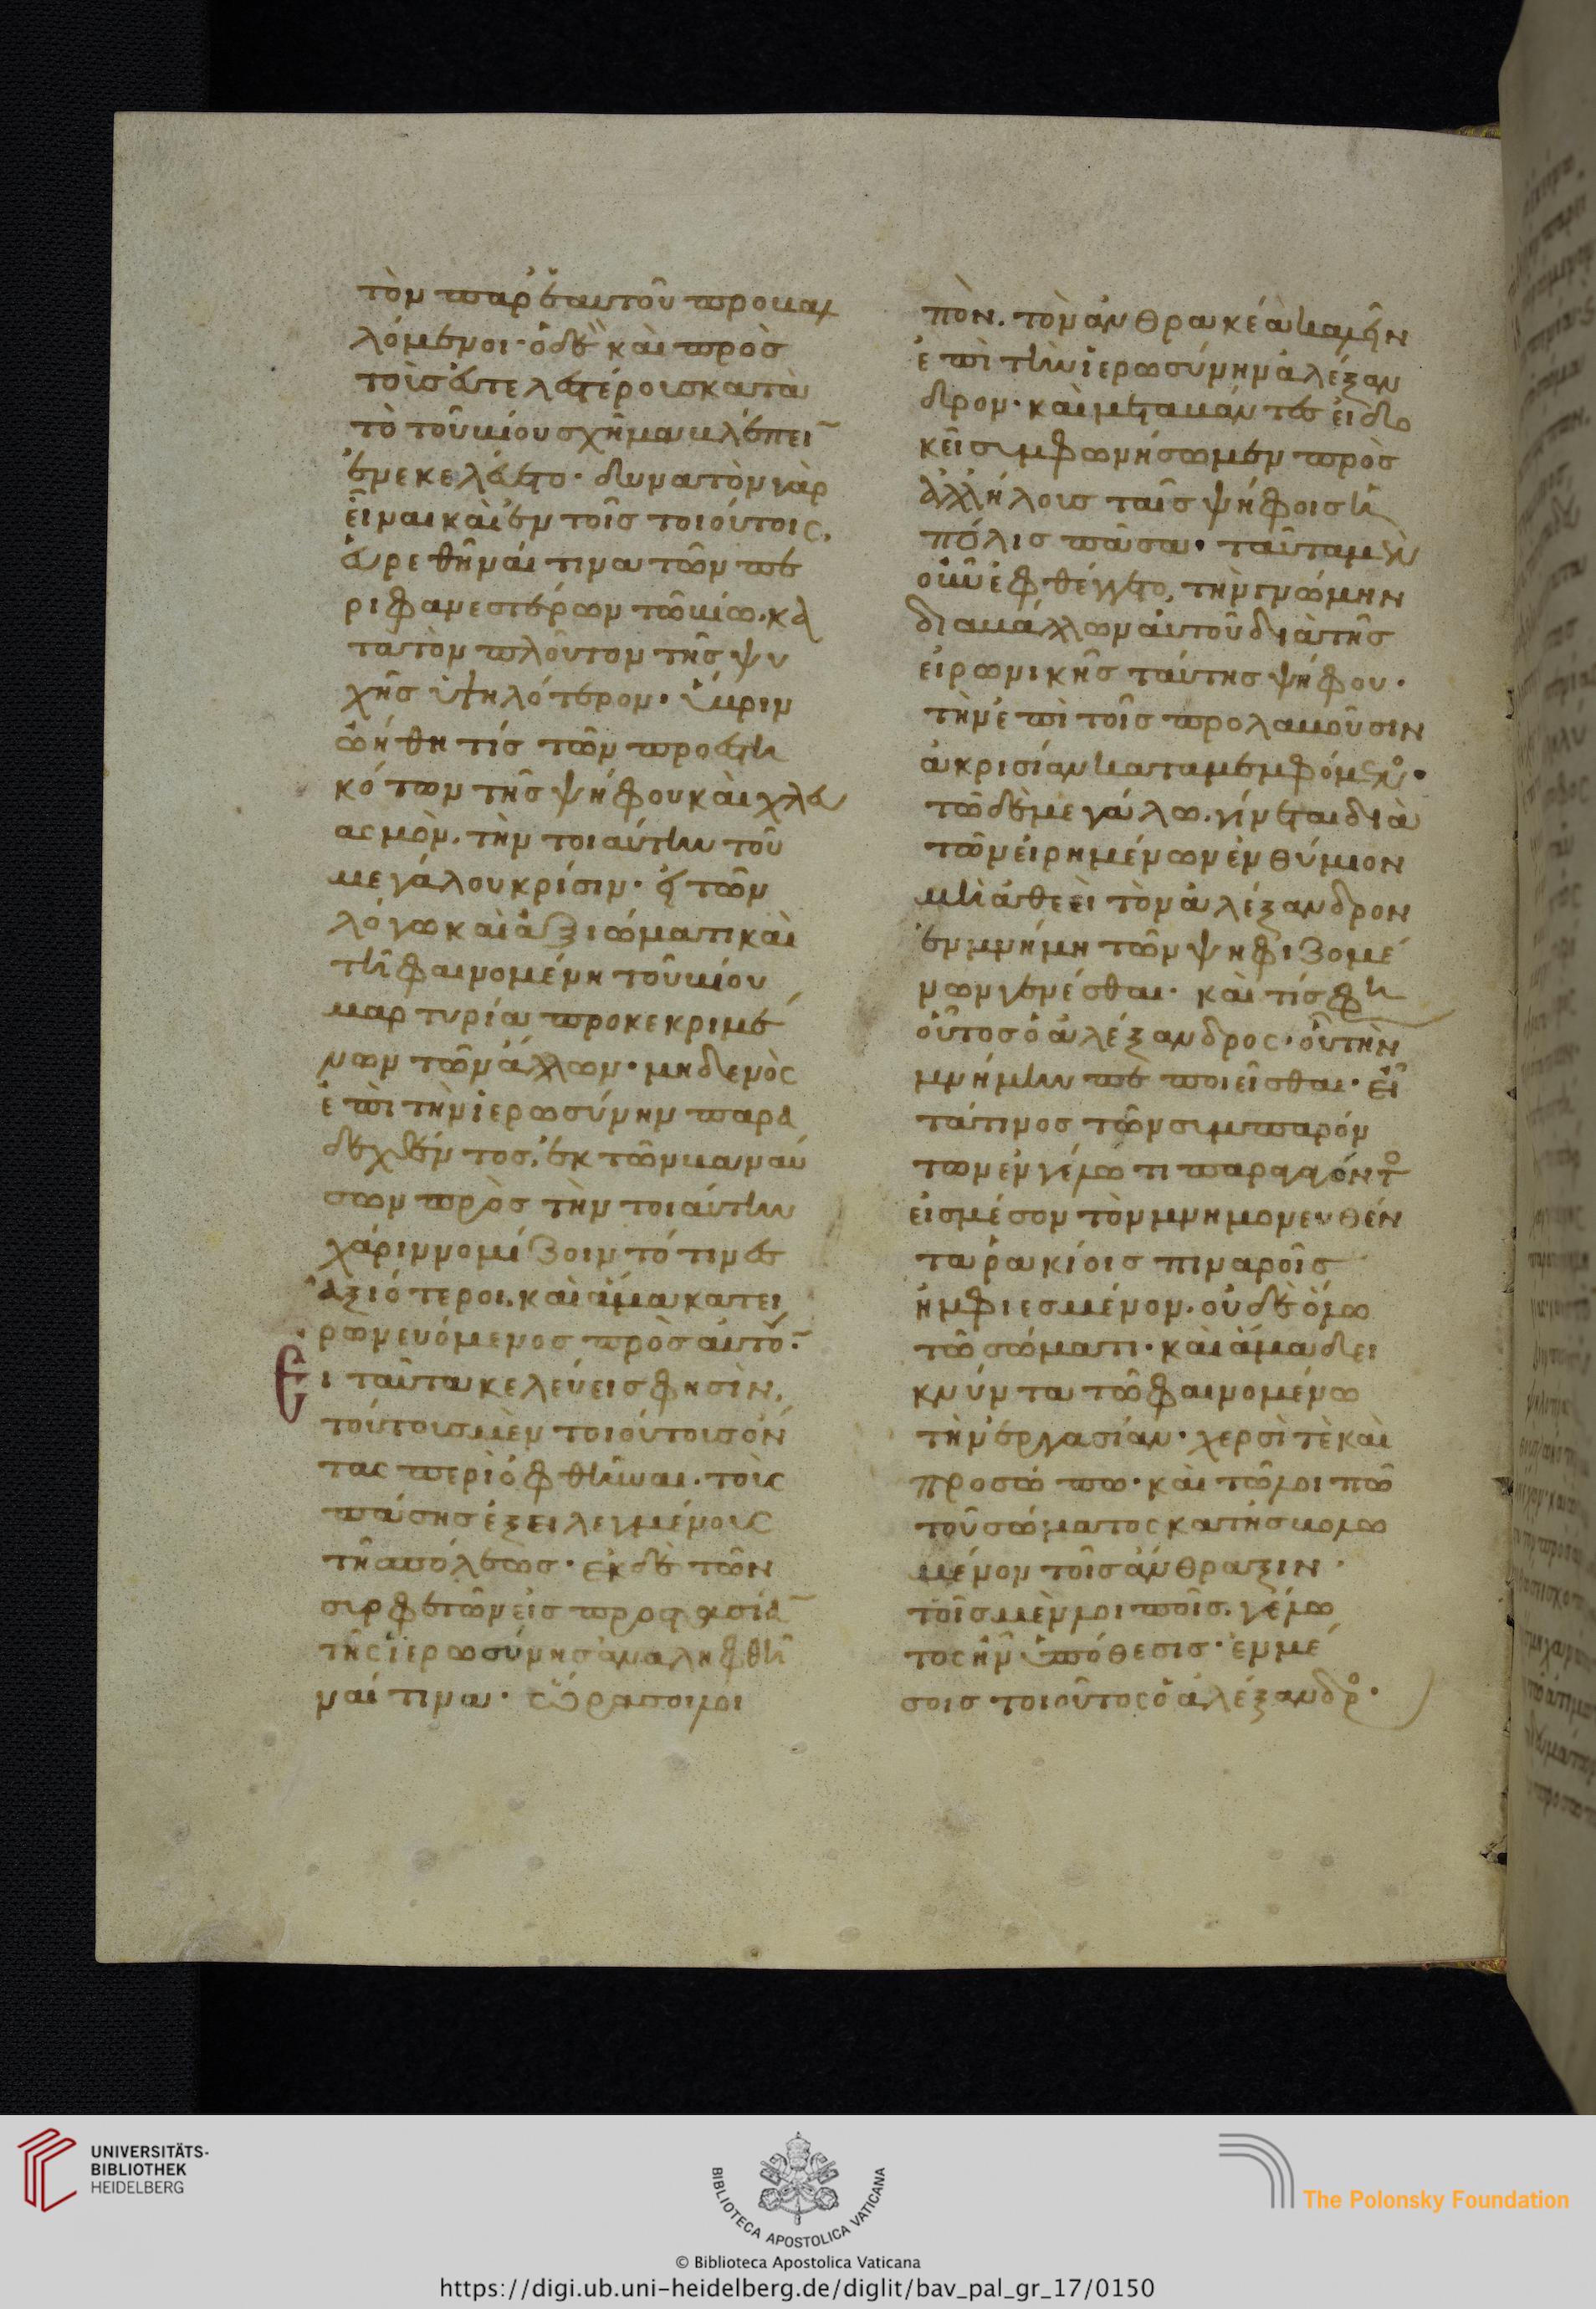 τὸν παρ' ἑαυτοῦ προβαλ
λόμενοι· ὁ δὲ καὶ πρὸς
τοὺς εὐτελεστέρους κατὰ
τὸ τοῦ βίου σχῆμα βλέπειν
ἐνεκελεύετο· δυνατὸν γὰρ
εἶναι καὶ ἐν τοῖς τοιούτοις,
εὑρεθῆναί τινα τῶν πε
ριφανεστέρων τῶ βίω. κα
τὰ τὸν πλοῦτον τῆς ψυ
χῆς ὑψηλότερον· ὕβριν
ὠήθη τίς τῶν προεστη
κότων τῆς ψήφου καὶ χλευ
ασμὸν. τὴν τοιαύτην τοῦ
μεγάλου κρίσιν· εἰ τῶν
λόγω καὶ ἀξιώματι καὶ
τῆ φαινομένη τοῦ βίου
μαρτυρία προκεκριμέ
νων τῶν ἄλλων· μηδενὸς
ἐπὶ τὴν ἱερωσύνην παρα
δεχθέντος, ἐκ τῶν βαναύ
σων πρὸς τὴν τοιαύτην
χάριν νομίζοιντό τινες
ἀξιότεροι. καὶ ἅμα κατει
ρωνευόμενος πρὸς αὐτόν·
Ει ταῦτα κελεύεις φησὶν,
τούτους μὲν τοιούτους ὄν
τας περιοφθῆναι. τοὺς
πάσης ἐξειλεγμένους
τῆς πόλεως· ἐκ δὲ τῶν
συρφετῶν εἰς προστασίαν
τῆς ἱερωσύνης ἀναληφθῆ
ναί τινα· ὥρα σοι λοι
πὸν. τὸν ἀνθρακέα καλεῖν
ἐπὶ τὴν ἱερωσύνην ἀλέξαν
δρον· καὶ μεταβάντες εἰ δο
κεῖ συμφωνήσωμεν πρὸς
ἀλλήλους ταῖς ψήφοις ἡ
πόλις πᾶσα· ταῦτα μὲν
οὖν ἐφθέγγετο, τὴν γνώμην
διαβάλλων αὐτοῦ διὰ τῆς
εἰρωνικῆς ταύτης ψήφου·
τὴν ἐπὶ τοῖς προλαβοῦσιν
ἀκρισίαν καταμεμφόμενος·
τῶ δὲ μεγάλω. γίνεται διὰ
τῶν εἰρημένων ἐνθύμιον
μὴ ἀθεεὶ τὸν ἀλέξανδρον
ἐν μνήμη τῶν ψηφιζομέ
νων γενέσθαι· καὶ τίς φη
οὗτος ὁ ἀλέξανδρος· οὗ τὴν
μνήμην πεποιεῖσθαι· εἶ
τά τινος τῶν συμπαρόν
των ἐν γέλωτι παραγαγόντος
εἰς μέσον τὸν μνημονευθέν
τα ῥακίοις πιναροῖς
ἠμφιεσμένον. οὐδὲ ὅλω
τῶ σώματι· καὶ ἅμα δει
κνύντα τῶ φαινομένω
τὴν ἐργασίαν· χερσί τὲ καὶ
προσώπω· καὶ τῶ λοιπῶ
τοῦ σώματος κατησβολω
μένον τοῖς ἄνθραξιν·
τοῖς μὲν λοιποῖς. γέλω
τος ἦν ὑπόθεσις· ἐμ μέ
σοις τοιοῦτος ὁ ἀλέξανδρος·
UNIVERSITÄTS-
BIBLIOTHEK
HEIDELBERG
BIBLIOTECA APOSTOLICA VATICANA
The Polonsky Foundation
© Biblioteca Apostolica Vaticana
https://digi.ub.uni-heidelberg.de/diglit/bav_pal_gr_17/0150